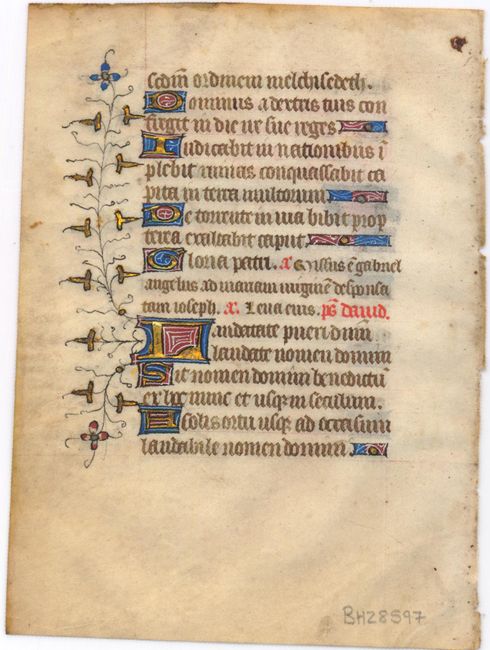 scdm ordinem melchisedech.
Dominus a dextris tuis con
fregit in die ire sue reges
Iudicabit in nationibus i
plebit ruinas conquassabit ca
pita in terra multorum
De torrente in uia bibit prop
terea exaltabit caput.
Gloria patri. a Missus e gabriel
angelus ad mariam uirgine desponsa
tam ioseph. a. Leua eius. ps dauid.
Laudate pueri dnm
laudate nomen domini
Sit nomen domini benedictu
ex hoc nunc et usq in seculum.
A solis ortu usq ad occasum
laudabile nomen domini.
BH28597